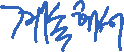 계속해서